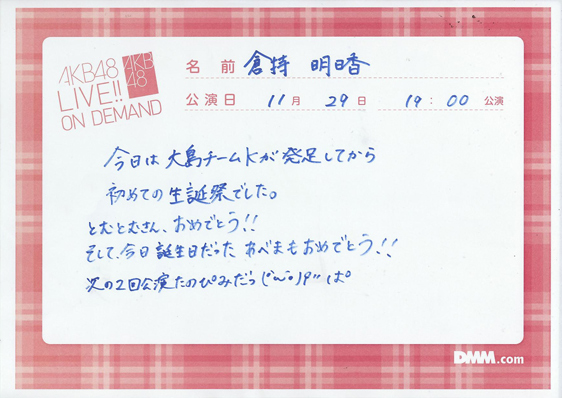 AKB48
LIVE!!
ON DEMAND
AKB
48
名前 倉持 明日香
公演日 11月 29日 19:00 公演
今日は大島チームKが発足してから
初めての生誕祭でした。
とむとむさん、おめでとう!!
そして、今日誕生日だった あべまもおめでとう!!
次の2回公演たのぴみだっ
DMM.com